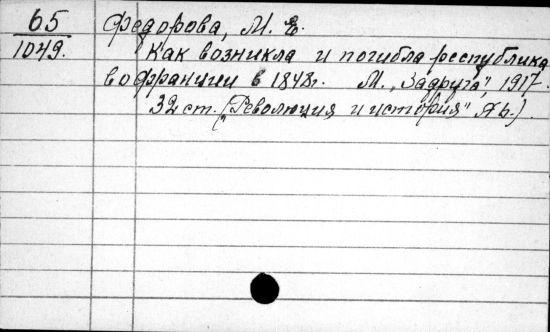 65 Федорова, М. Е.
1049. Как возникла и погибла республика
во Франции в 1848г. М. „Задруга", 1917.
32 ст. („Революция и история" № 6.)